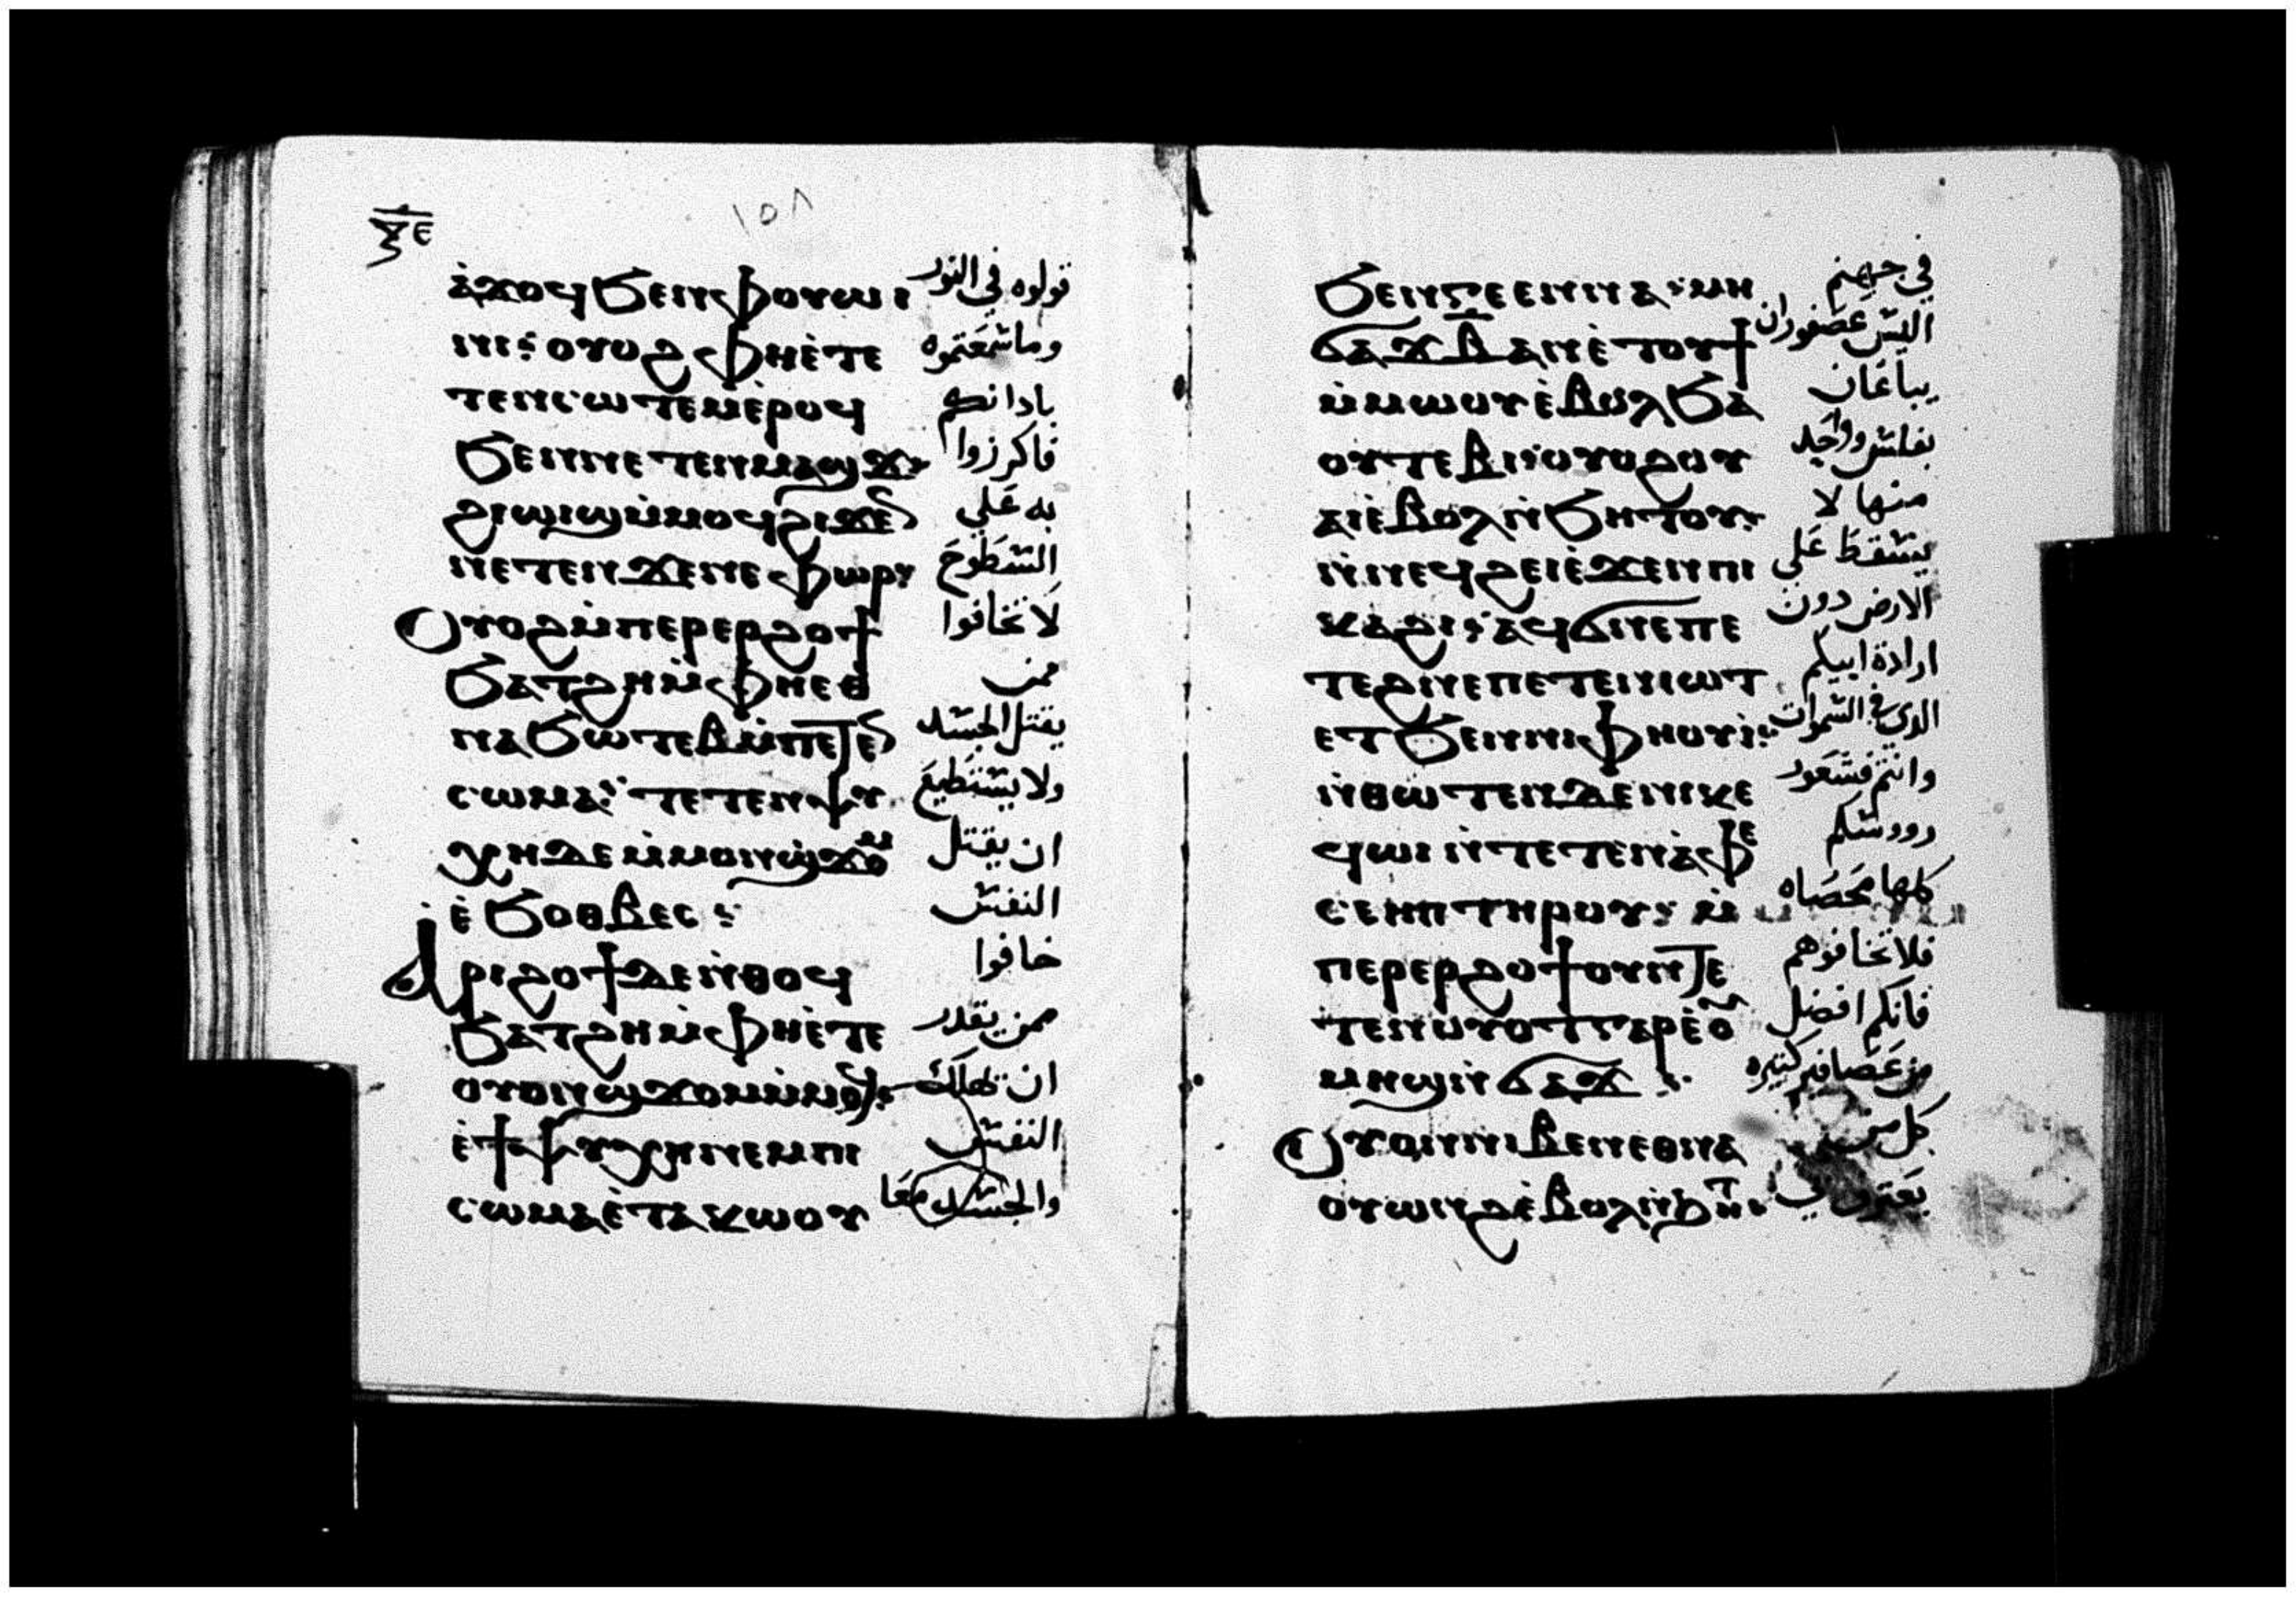 ⲝⲉ
١٥٨
ⲁ̀ϫⲟϥ ϧⲉⲛ ⲫⲟⲩⲱⲓ قولوه في النور
ⲛⲓ: ⲟⲩⲟϩ ⲫⲏⲉ̀ⲧⲉ وما سمعتموه
ⲧⲉⲛⲥⲱⲧⲉⲙ ⲉ̀ⲣⲟϥ بادانكم
ϧⲉⲛ ⲛⲉⲧⲉⲛⲙⲁϣϫ فاكرزوا
ϩⲓⲱⲓϣ ⲙ̀ⲙⲟϥ ϩⲓϫⲉ به علي
ⲛⲉⲧⲉⲛϫⲉⲛⲉⲫⲱⲣ السطوح
Ⲟⲩⲟϩ ⲙ̀ⲡⲉⲣⲉⲣϩⲟϯ لا تخافوا
ϧⲁⲧϩⲏ ⲙ̀ⲫⲏⲉⲑ ممن
ⲛⲁϧⲱⲧⲉⲃ ⲙ̀ⲡⲉⲧⲉ يقتل الجسد
ⲥⲱⲙⲁ: ⲧⲉⲧⲉⲛⲯⲩ ولا يستطيع
ⲭⲏ ⲇⲉ ⲙ̀ⲙⲟⲛ ϣϫⲟⲙ ان يقتل
ⲉ̀ϧⲟⲑⲃⲉⲥ: النفس
Ⲁⲣⲓϩⲟϯ ⲇⲉ ⲛ̀ⲑⲟϥ خافوا
ϧⲁⲧϩⲏ ⲙ̀ⲫⲏⲉ̀ⲧⲉ ممن يقدر
ⲟⲩⲟⲛ ϣϫⲟⲙ ⲙ̀ⲙⲟϥ: ان يهلك
ⲉ̀ϯⲯⲩⲭⲏ ⲛⲉⲙ ⲡⲓ النفس
ⲥⲱⲙⲁ ⲉ̀ⲧⲁⲕⲱⲟⲩ والجسد معا
ϧⲉⲛ ⲅⲉⲉⲛⲛⲁ: ⲙⲏ في جهنم
ϭⲁϫ ⲃ̅ ⲁⲛ ⲉ̀ⲧⲟⲩϯ اليس عصفوران
ⲙ̀ⲙⲱⲟⲩ ⲉ̀ⲃⲟⲗ ϧⲁ يباعان
ⲟⲩⲧⲉⲃⲓ: ⲟⲩⲟϩ ⲟⲩ بفلس وواحد
ⲁⲓ ⲉ̀ⲃⲟⲗ ⲛ̀ϧⲏⲧⲟⲩ: منها لا
ⲛ̀ⲛⲉϥϩⲉⲓ ⲉ̀ϫⲉⲛ ⲡⲓ يسقط علي
ⲕⲁϩⲓ: ⲁϥϭⲛⲉ ⲡⲉ الارض دون
ⲧⲉϩⲛⲉ ⲡⲉⲧⲉⲛⲓⲱⲧ ارادة ابيكم
ⲉⲧϧⲉⲛ ⲛⲓⲫⲏⲟⲩⲓ̀: الدي في السموات
ⲛ̀ⲑⲱⲧⲉⲛ ⲇⲉ ⲛⲓⲕⲉ وانتم فشعور
ϥⲱⲓ ⲛ̀ⲧⲉ ⲧⲉⲛⲁ̀ⲫⲉ رووسكم
ⲥⲉⲏⲡ ⲧⲏⲣⲟⲩ: ⲙ̀ كلها محصاه
ⲡⲉⲣⲉⲣϩⲟϯ ⲟⲩⲛ ⲧⲉ فلا تخافوهم
ⲧⲉⲛⲟⲩⲟⲧ ⲅⲁⲣ ⲉ̀ⲟ فانكم افضل
ⲙⲏϣ ⲛ̀ϭⲁϫ: من عصافير كتيره
Ⲟⲩⲟⲛ ⲛⲓⲃⲉⲛ ⲉⲑⲛⲁ كل من
ⲟⲩⲱⲛϩ ⲉ̀ⲃⲟⲗ ⲛ̀ϧⲏⲧ: يعترف بي